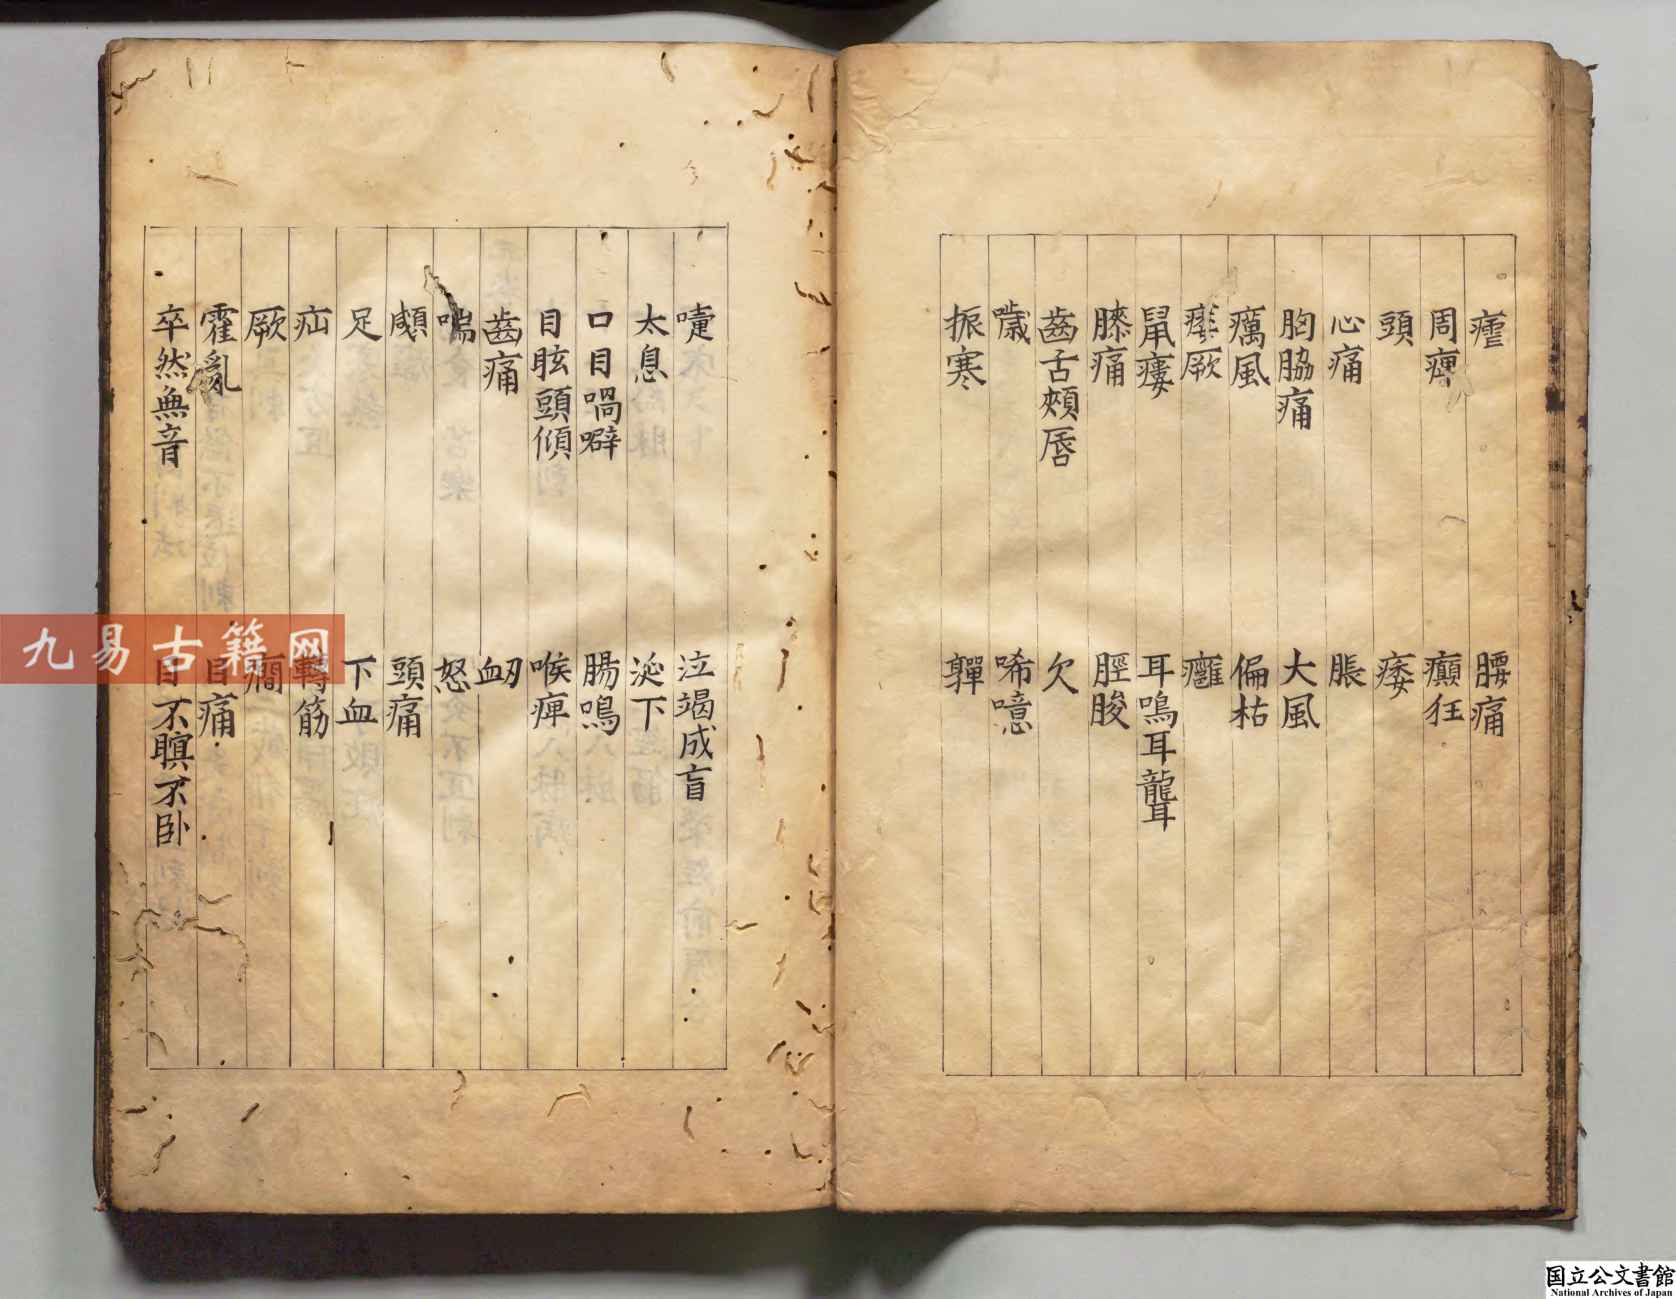 瘧　腰痛
周痺　癲狂
頭　痿
心痛　脹
胸脇痛　大風
癘風　偏枯
厥　癰
鼠瘻　耳鳴耳聾
膝痛　脛
齒舌頰唇　欠
噦　唏噫
振寒　嚲
嚏　泣竭成盲
太息　涎下
口目喎噼　腸鳴
目眩頭傾　喉痺
齒痛　衂
喘　怒
顑　頭痛
足　下血
疝　轉筋
厥　癎
霍亂　目痛
卒然無音　目不瞑不卧
九易古籍网
国立公文書館
National Archives of Japan